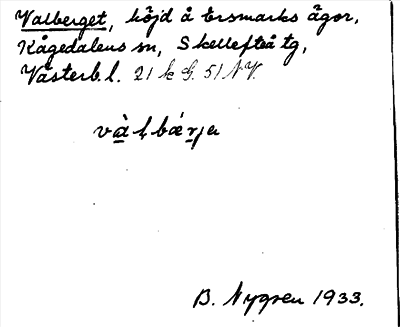 Valberget, höjd å Ersmarks ägor,
Kågedalens sn, Skellefteå tg,
Västerb. l. 21 k G. 51 NV.
và̱ḷbǽṟja
B. Nygren 1933.